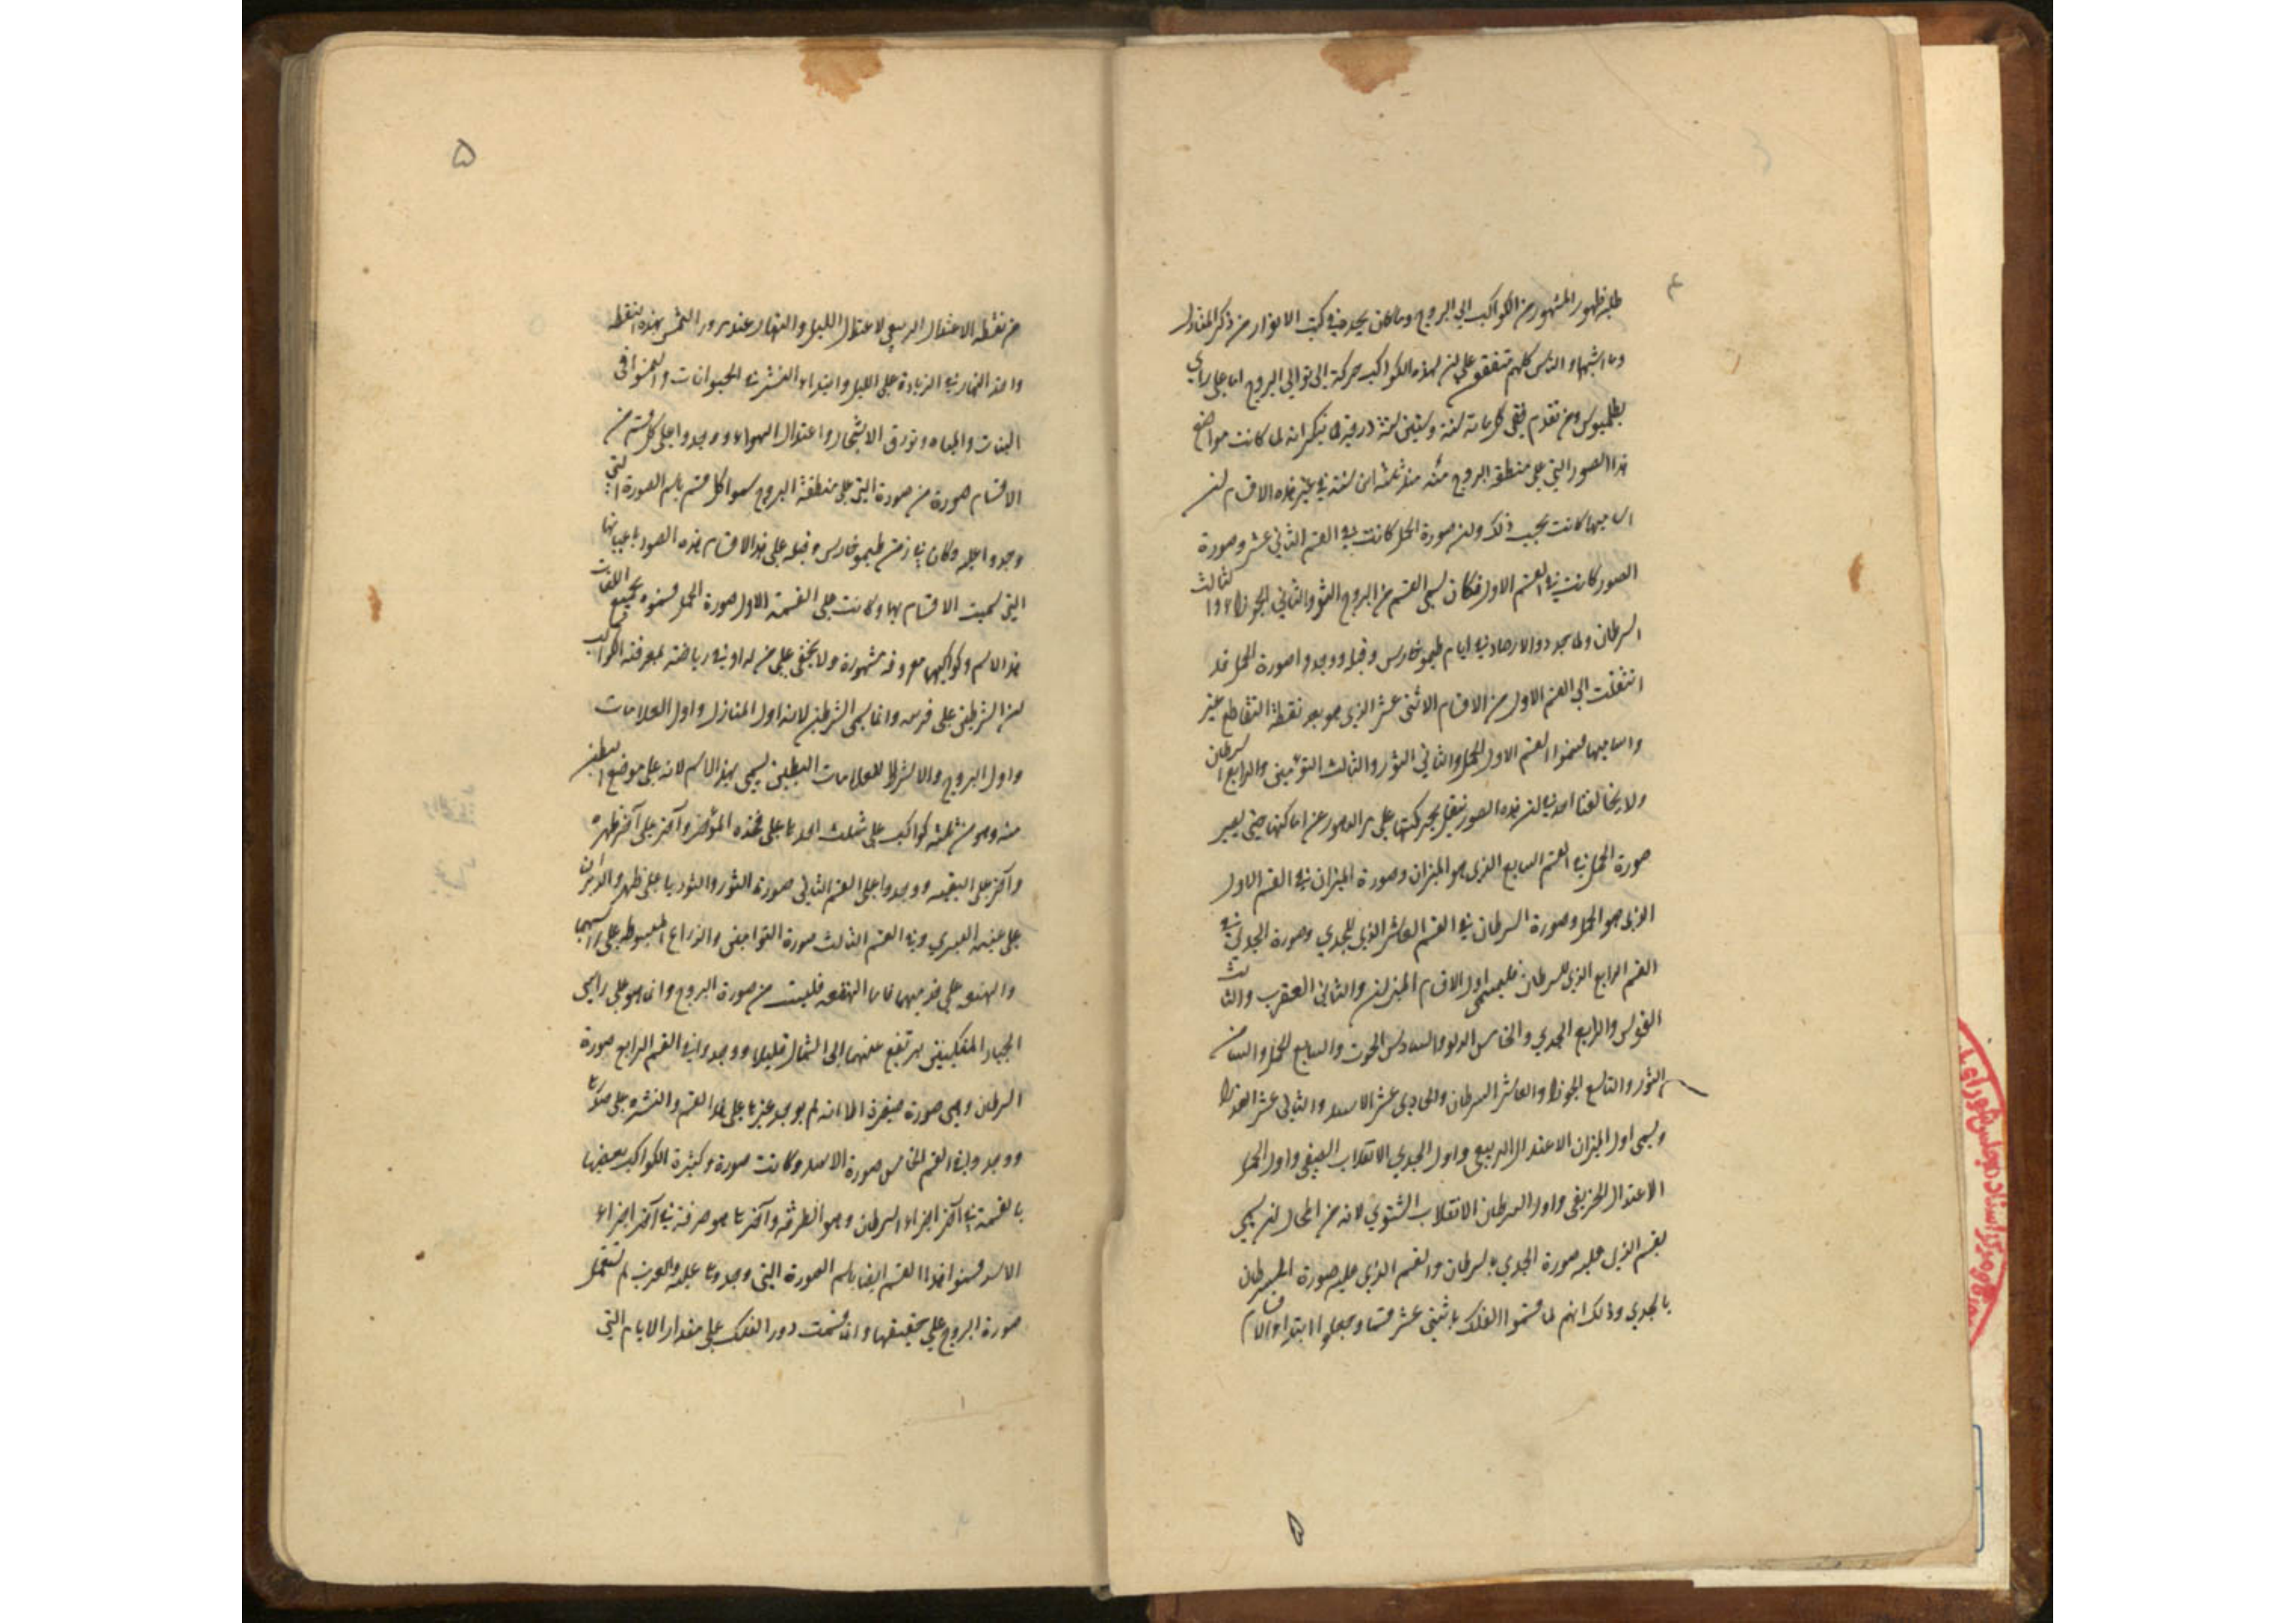 ٤
ظهور المشهور من الكواكب الى البروج وما كان يجري في كتب الانوار من ذكر المنازل
وما اشبهها والناس كلهم متفقون على ان لهذه الكواكب حركة الى توالي البروج اما على راي
بطلميوس ومن تقدم ففي كل مائة سنة وستين سنة درجة
هذا الصور التي على منطقة البروج منذ ثلثة الف سنة في غير هذه الاقسام لن
اساميها كانت بحسب ذلك ولن صورة الحمل كانت في القسم الثاني عشر وصورة
الصور كانت في القسم الاول فكان يسمى القسم من البروج الثور والثاني الجوزا والثالث
السرطان ولما جددوا الارصاد في ايام طيموخارس وقبله ووجدوا صورة الحمل قد
انتقلت الى القسم الاول من الاقسام الاثنى عشر الذي هو بعد نقطة التقاطع غير
واساميها فسموا القسم الاول الحمل والثاني الثور والثالث التوأمين والرابع السرطان
ولا يخالفنا احد في لن هذه الصور تنتقل بحركتها على مر الدهور عن اماكنها حتى يصير
صورة الحمل في القسم السابع الذي هو الميزان وصورة الميزان في القسم الاول
الذي هو الحمل وصورة السرطان في القسم العاشر الذي للجدي وصورة الجدي في
القسم الرابع الذي للسرطان فليسمى اول الاقسام الميزان والثاني العقرب والثالث
القوس والرابع الجدي والخامس الدلو والسادس الحوت والسابع الحمل والثامن
الثور والتاسع الجوزا والعاشر السرطان والحادي عشر الاسد والثاني عشر العذرا
ويسمى اول الميزان الاعتدال الربيعي واول الجدي الانقلاب الصيفي واول الحمل
الاعتدال الخريفي واول السرطان الانقلاب الشتوي لانه من المحال لن يسمى
القسم الذي عليه صورة الجدي بالسرطان والقسم الذي عليه صورة السرطان
بالجدي وذلك انهم لما قسموا الفلك باثنى عشر قسما وجعلوا ابتداء الاقسام
٥
٥
من نقطة الاعتدال الربيعي لاعتدال الليل والنهار عند مرور الشمس بهذه النقطة
واخذ النهار في الزيادة على الليل وابتداء النشو في الحيوانات والنمو في
النبات والمياه وتورق الاشجار واعتدال الهواء ووجدوا على كل قسم من
الاقسام صورة من صورة التي على منطقة البروج سموا كل قسم باسم الصورة التي
وجدوا عليه وكان في زمن طيموخارس وقبله على هذا الاقسام هذه الصور باعيانها
التي سميت الاقسام بها وكانت على القسمة الاول صورة الحمل فسموه بجميع اللغات
هذا الاسم وكواكبها معروفة مشهورة ولا يخفى على من له ادنى رياضة بمعرفة الكواكب
لن الشرطين على قرنيه وانما يسمى الشرطين لانه اول المنازل واول العلامات
واول البروج والاشراط العلامات البطين يسمى بهذا الاسم لانه على موضع البطن
منه وهو من ثلثة كواكب على مثلث احدها على فخذه المؤخر وآخر على آخر ظهره
وآخر على اليته ووجدوا على القسم الثاني صورة الثور والثريا على ظهره والدبران
على عينه اليسرى وفي القسم الثالث صورة التوامين والذراع المبسوطة على راسيهما
والهنعة على قدميهما فاما الهقعة فليست من صورة البروج وانما هو على راس
الجبار المتكبين يرتفع عنهما الى الشمال قليلا ووجدوا في القسم الرابع صورة
السرطان وهي صورة صغيرة الا انه لم يوجد غيرها على هذا القسم والنثرة على صدرها
ووجدوا في القسم الخامس صورة الاسد وكانت صورة كثيرة الكواكب بعضها
بالقسمة في آخر اجزاء السرطان وهو الطرفة وآخرها هو صرفة في آخر اجزاء
الاسد فسموا هذا القسم ايضا باسم الصورة التي وجدوها عليه والعرب لم تستعمل
صورة البروج على حقيقتها وانما قسمت دور الفلك على مقدار الايام التي